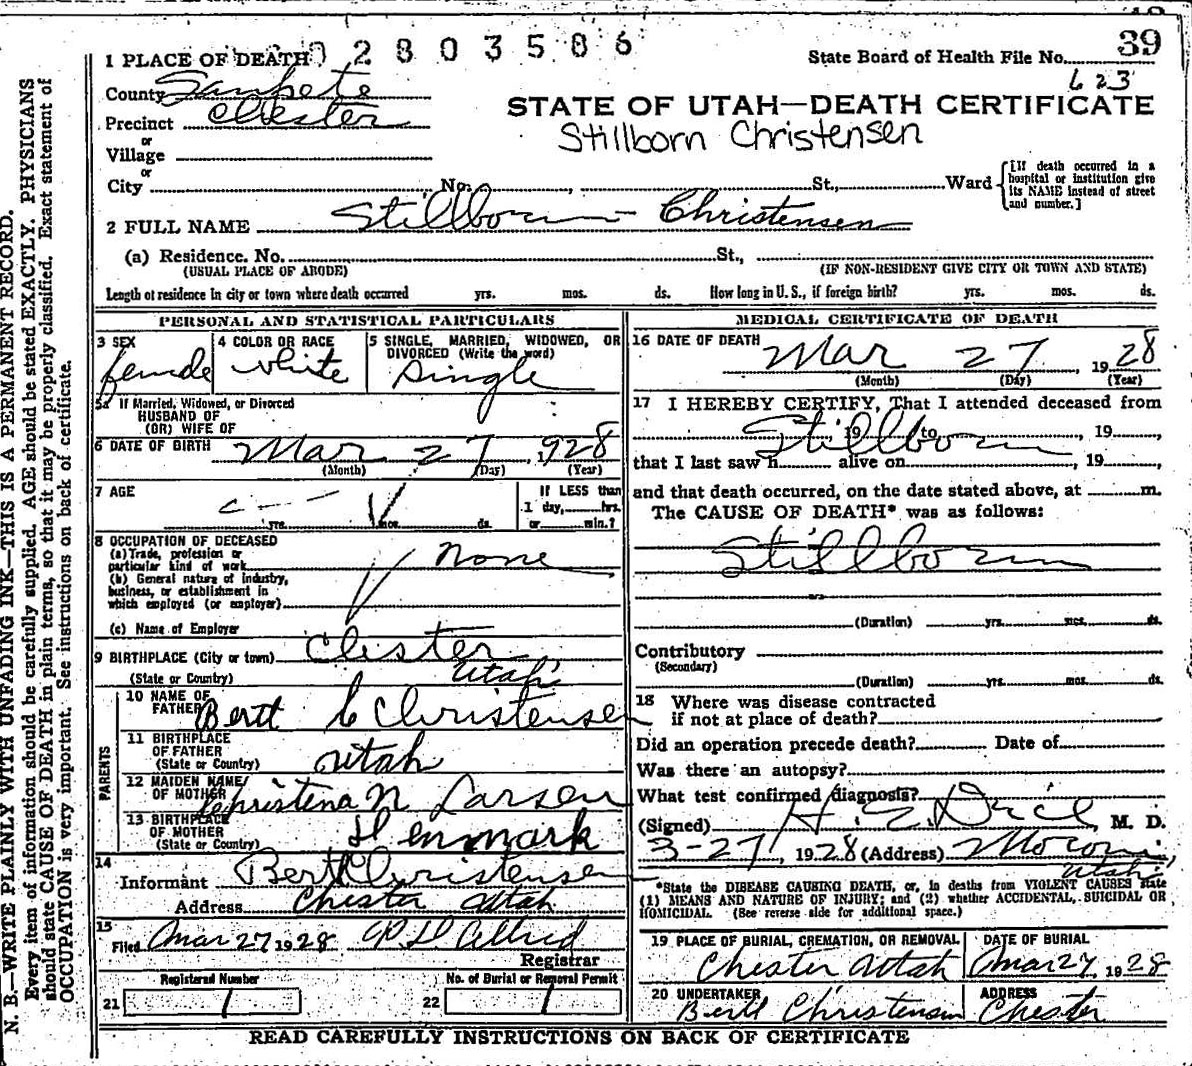 2803586
39
1 PLACE OF DEATH
State Board of Health File No.
County Sanpete
623
STATE OF UTAH—DEATH CERTIFICATE
Precinct Chester
Stillborn Christensen
or
Village
or
City No. , St., Ward
[If death occurred in a
hospital or institution give
its NAME instead of street
and number.]
2 FULL NAME Stillborn - Christensen
(a) Residence. No. St.,
(USUAL PLACE OF ABODE) (IF NON-RESIDENT GIVE CITY OR TOWN AND STATE)
Length of residence in city or town where death occurred yrs. mos. ds. How long in U. S., if foreign birth? yrs. mos. ds.
PERSONAL AND STATISTICAL PARTICULARS
3 SEX
female
4 COLOR OR RACE
white
5 SINGLE, MARRIED, WIDOWED, OR
DIVORCED (Write the word)
Single
5a If Married, Widowed, or Divorced
HUSBAND OF
(OR) WIFE OF
6 DATE OF BIRTH Mar 27, 1928
(Month) (Day) (Year)
7 AGE
yrs. mos. ds.
If LESS than
1 day, hrs.
or min.?
8 OCCUPATION OF DECEASED
(a) Trade, profession or
particular kind of work None
(b) General nature of industry,
business, or establishment in
which employed (or employer)
(c) Name of Employer
9 BIRTHPLACE (City or town) Chester
(State or Country) Utah
PARENTS
10 NAME OF
FATHER Bertt C Christensen
11 BIRTHPLACE
OF FATHER
(State or Country) Utah
12 MAIDEN NAME
OF MOTHER Christena N Larsen
13 BIRTHPLACE
OF MOTHER
(State or Country) Denmark
14
Informant Bertt Christensen
Address Chester Utah
15
Filed Mar 27 1928 Allred
Registrar
Registered Number
21 1
No. of Burial or Removal Permit
22 1
MEDICAL CERTIFICATE OF DEATH
16 DATE OF DEATH Mar 27 1928
(Month) (Day) (Year)
17 I HEREBY CERTIFY, That I attended deceased from
Stillborn 19 to , 19 ,
that I last saw h alive on , 19 ,
and that death occurred, on the date stated above, at m.
The CAUSE OF DEATH* was as follows:
Stillborn
(Duration) yrs. mos. ds.
Contributory
(Secondary)
(Duration) yrs. mos. ds.
18 Where was disease contracted
if not at place of death?
Did an operation precede death? Date of
Was there an autopsy?
What test confirmed diagnosis?
(Signed) H. E. , M. D.
3-27, 1928 (Address) Moroni,
Utah
*State the DISEASE CAUSING DEATH, or, in deaths from VIOLENT CAUSES state
(1) MEANS AND NATURE OF INJURY; and (2) whether ACCIDENTAL, SUICIDAL OR
HOMICIDAL. (See reverse side for additional space.)
19 PLACE OF BURIAL, CREMATION, OR REMOVAL
Chester Utah
DATE OF BURIAL
Mar 27, 1928
20 UNDERTAKER
Bertt Christensen
ADDRESS
Chester
READ CAREFULLY INSTRUCTIONS ON BACK OF CERTIFICATE
N. B.—WRITE PLAINLY WITH UNFADING INK—THIS IS A PERMANENT RECORD.
Every item of information should be carefully supplied. AGE should be stated EXACTLY. PHYSICIANS
should state CAUSE OF DEATH in plain terms, so that it may be properly classified. Exact statement of
OCCUPATION is very important. See instructions on back of certificate.